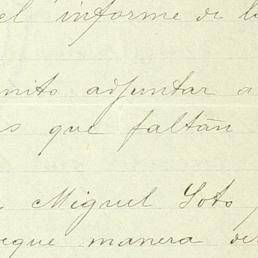 el informe de l
nito adjuntar a
s que faltan
Miguel Soto
eque manera de